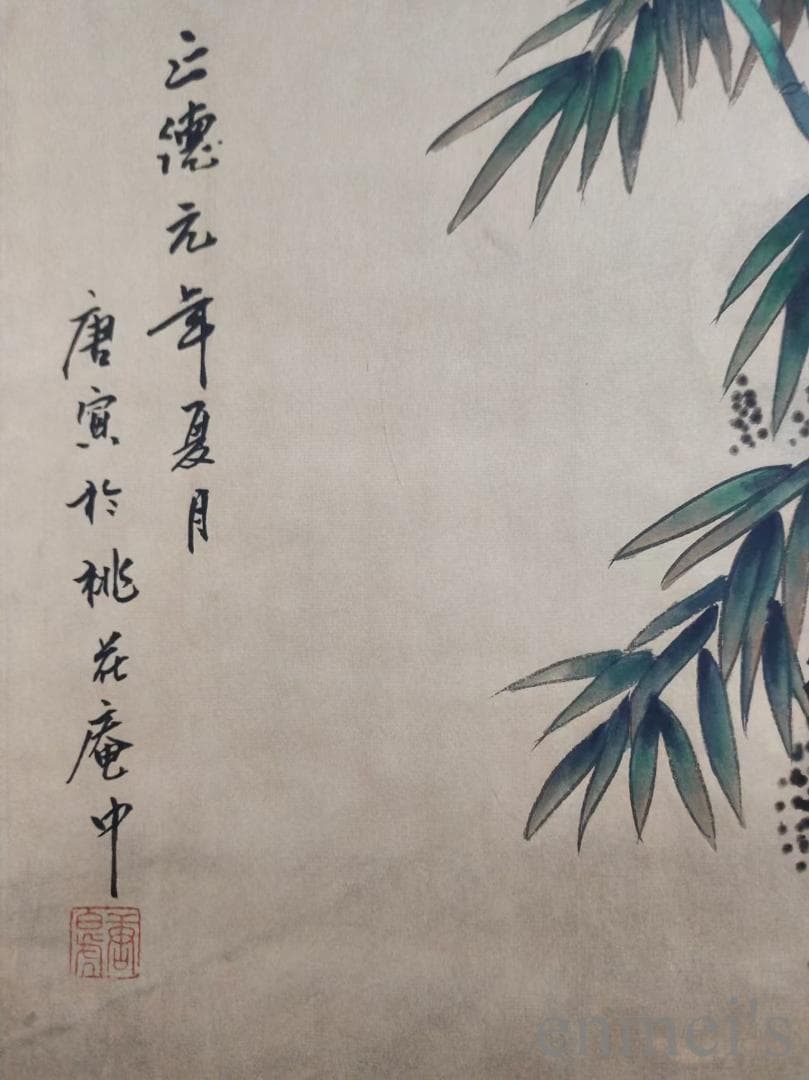 正德元年夏月
唐寅於桃花庵中
唐寅
enmei's